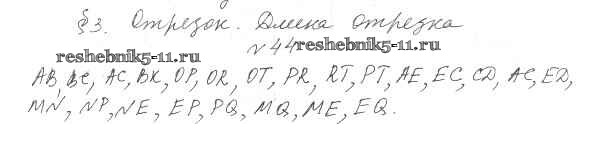 §3. Отрезок. Длина отрезка
reshebnik5-11.ru
№44 reshebnik5-11.ru
AB, BC, AC, BK, OP, OR, OT, PR, RT, PT, AE, EC, CD, AC, ED,
MN, NP, NE, EP, PQ, MQ, ME, EQ.